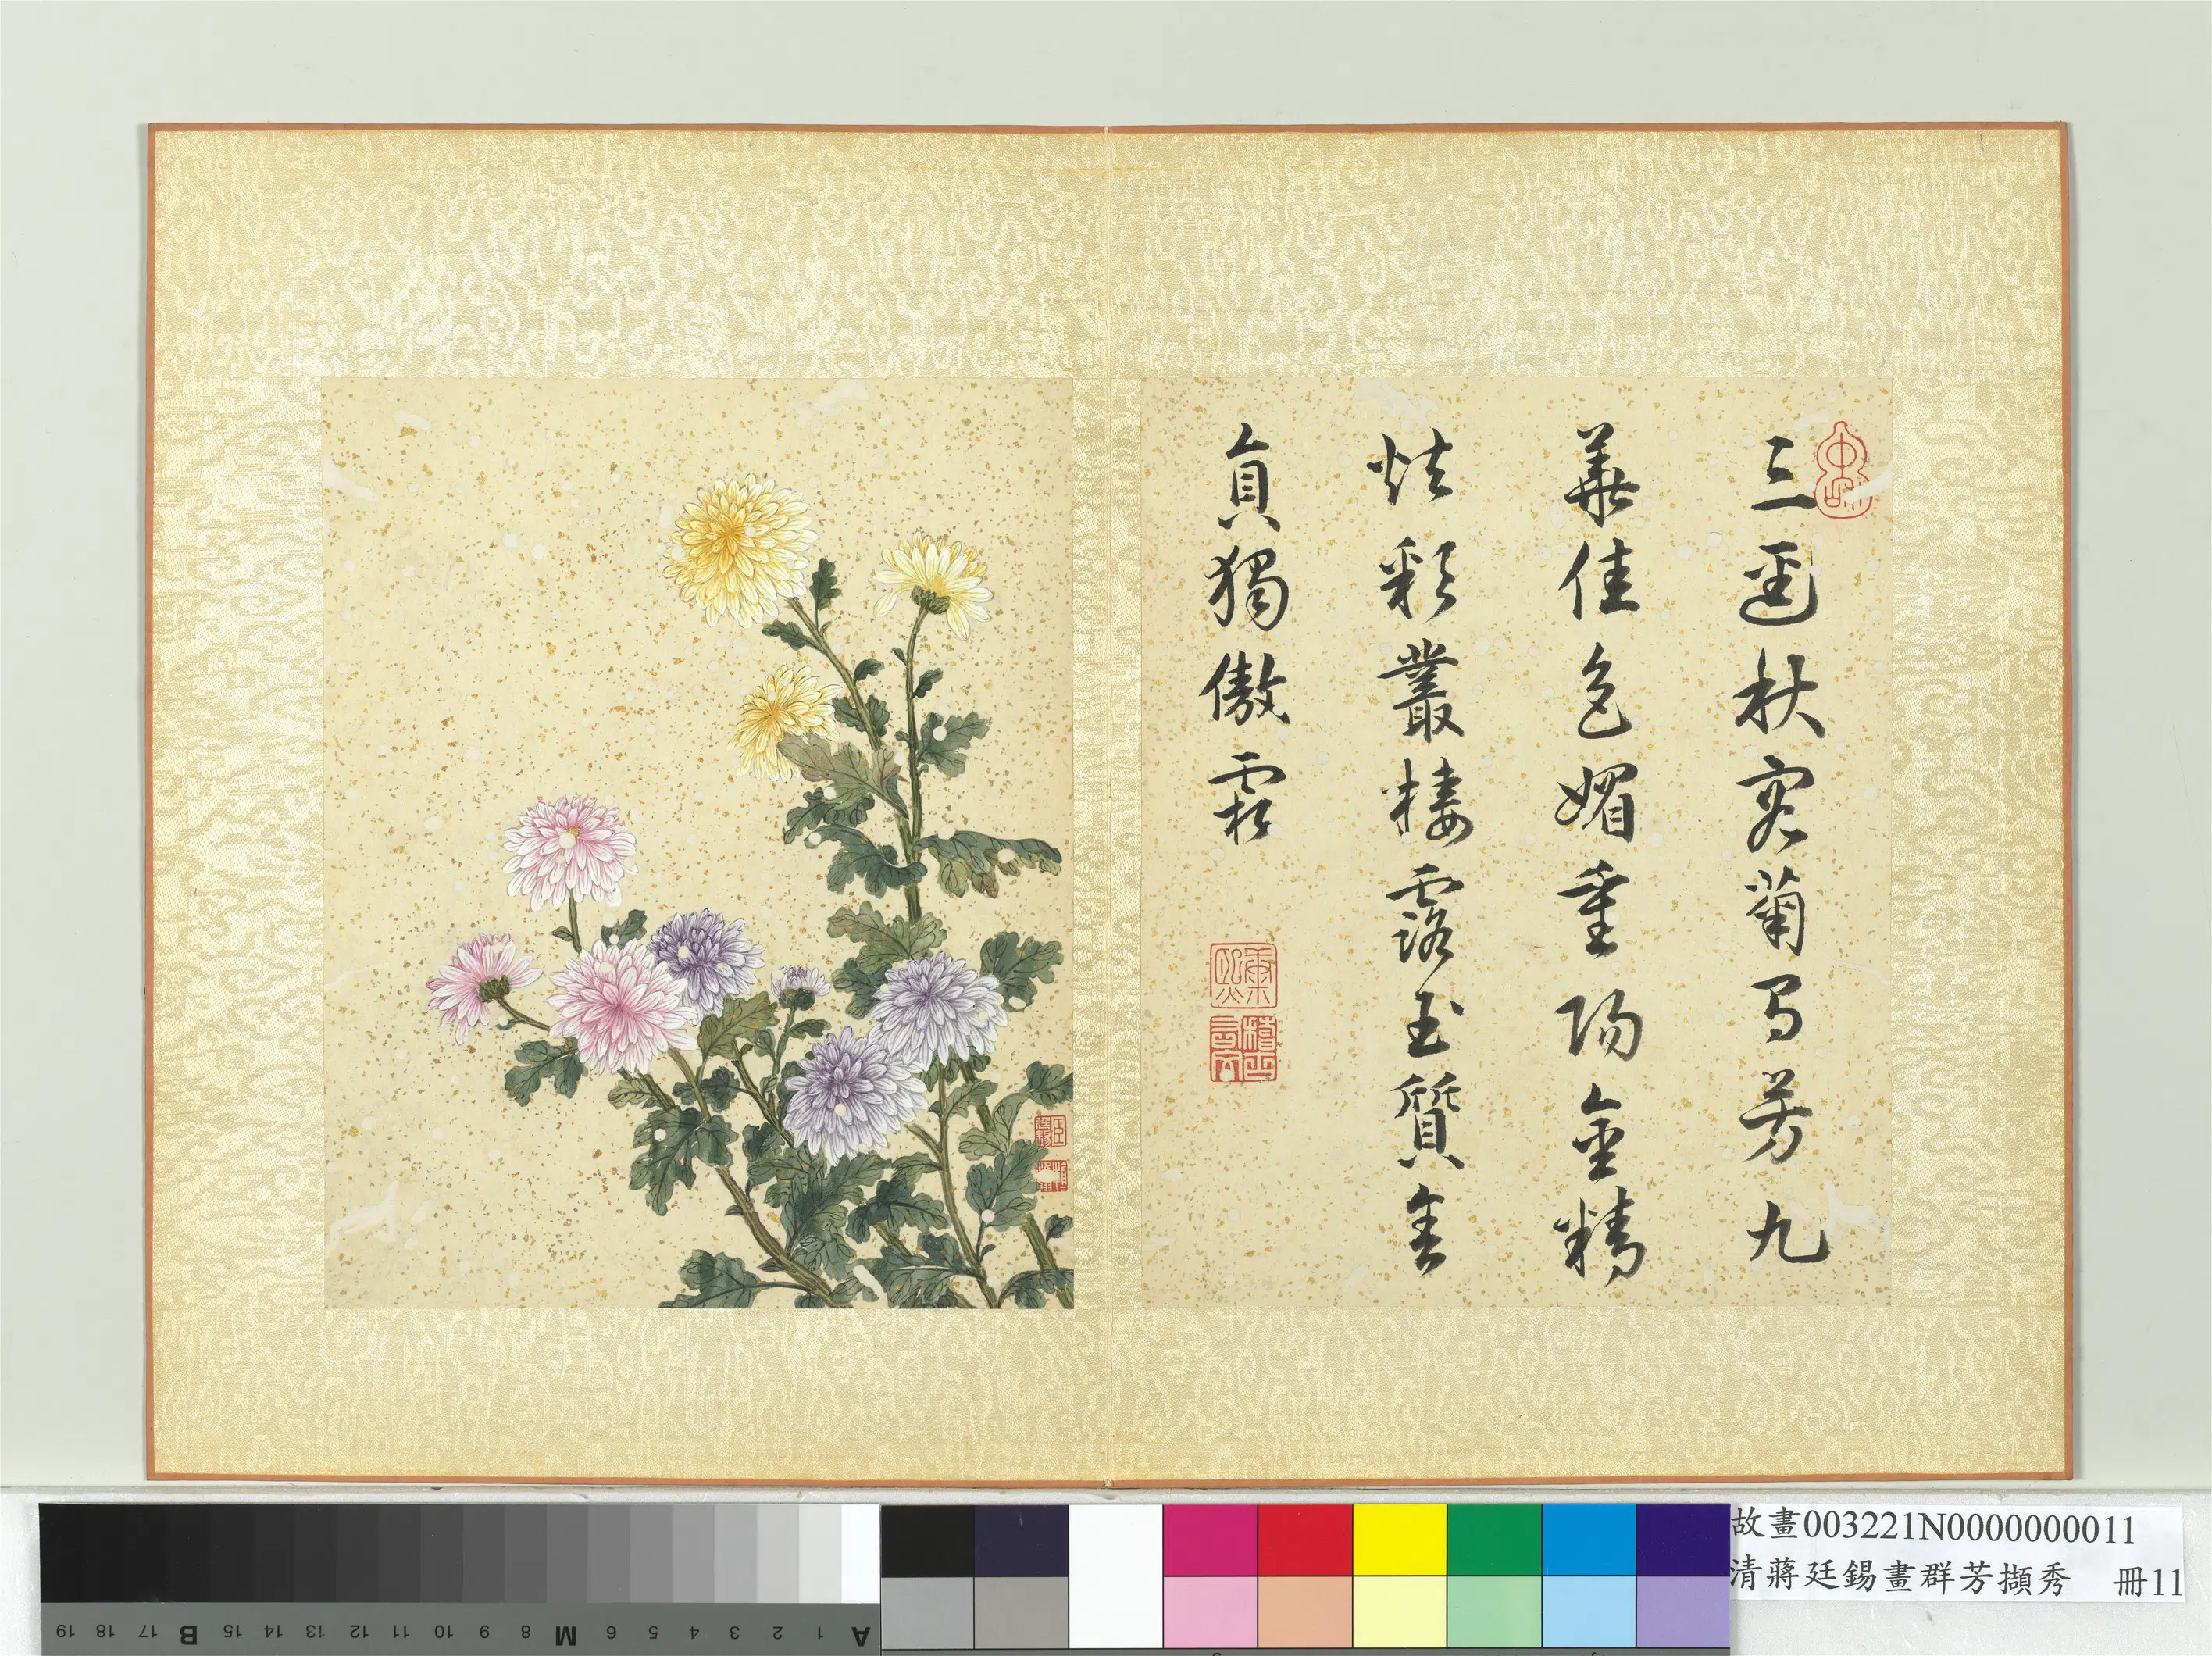 三逕秋容菊有芳九
華佳色媚重陽金精
炫彩叢棲露玉質含
貞獨傲霜
康熙
稽古右文
故畫003221N0000000011
清蔣廷錫畫群芳擷秀 冊11
A 1 2 3 4 5 6 M 8 9 10 11 12 13 14 15 B 17 18 19